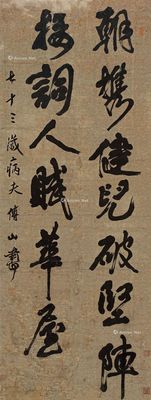 朝携健兒破堅陣
招詞人賦華屋
七十三歲病夫傅山書